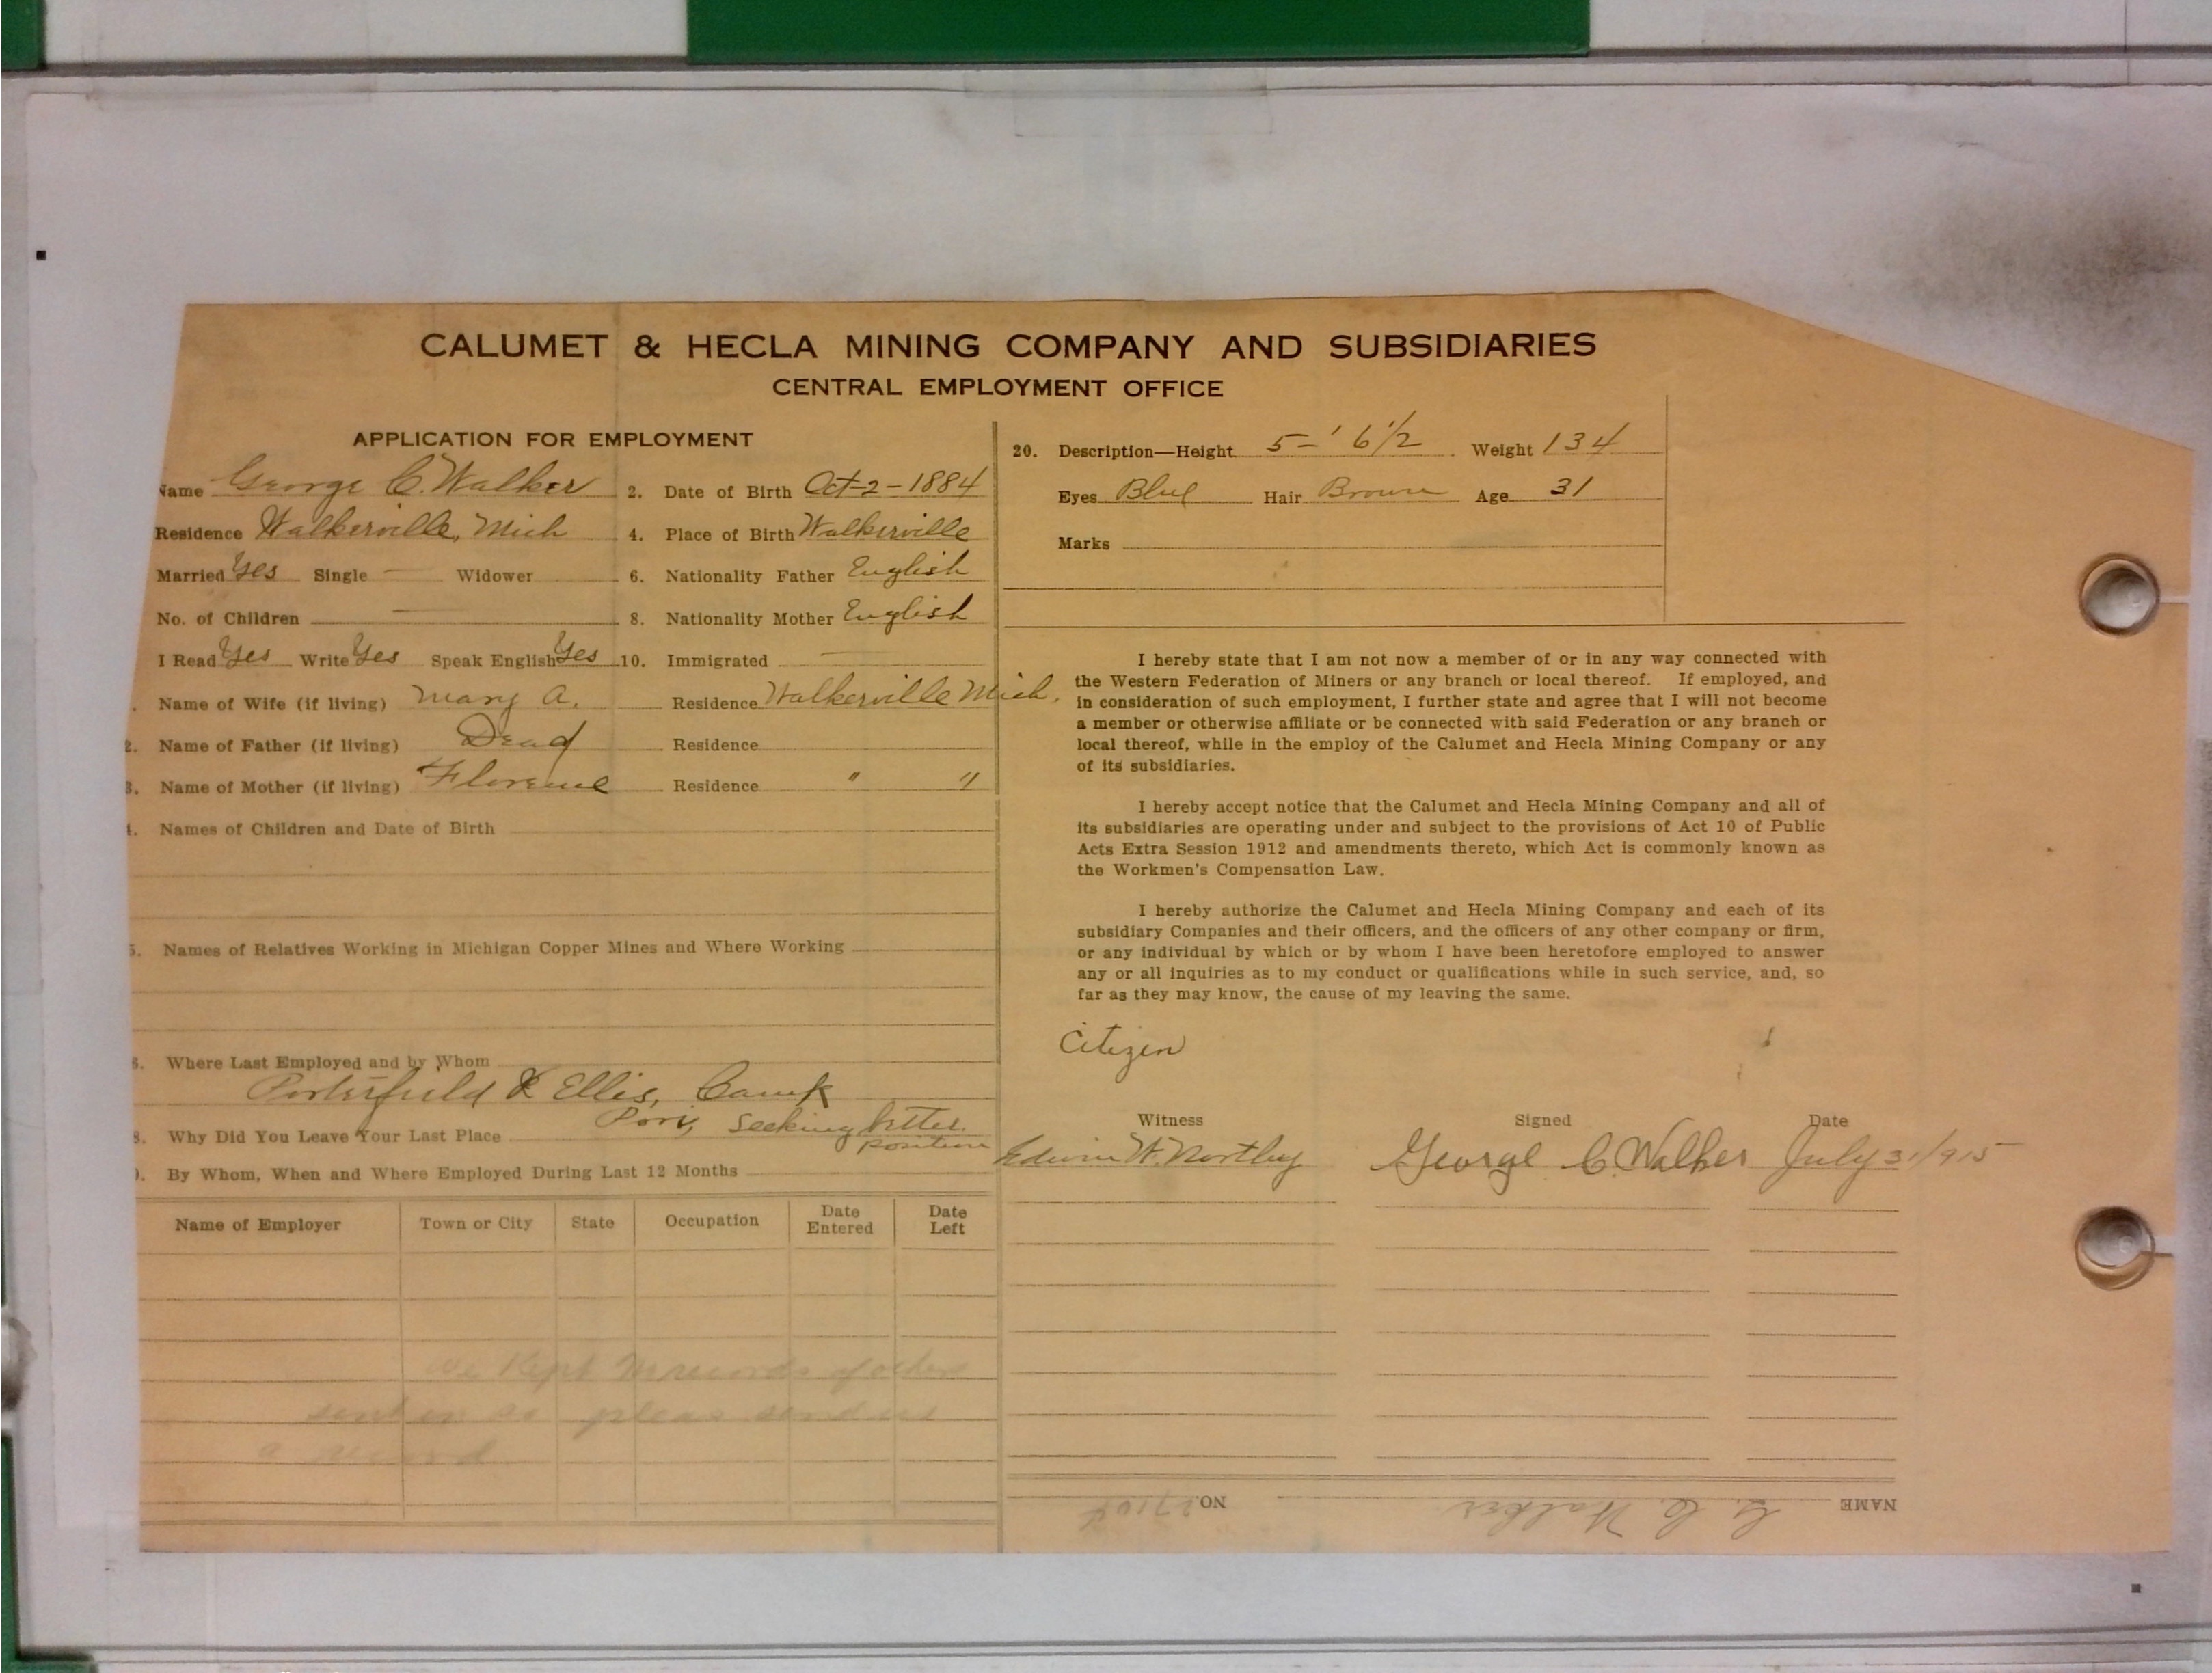 CALUMET & HECLA MINING COMPANY AND SUBSIDIARIES
CENTRAL EMPLOYMENT OFFICE
APPLICATION FOR EMPLOYMENT
Name George C. Walker 2. Date of Birth Oct-2-1884
Residence Walkerville, Mich 4. Place of Birth Walkerville
Married Yes Single — Widower 6. Nationality Father English
No. of Children — 8. Nationality Mother English
I Read Yes Write Yes Speak English Yes 10. Immigrated —
Name of Wife (if living) Mary A. Residence Walkerville Mich.
2. Name of Father (if living) Dead Residence
3. Name of Mother (if living) Florence Residence " "
4. Names of Children and Date of Birth
5. Names of Relatives Working in Michigan Copper Mines and Where Working
6. Where Last Employed and by Whom
Porterfield & Ellis, Camp
Pori, Seeking better
8. Why Did You Leave Your Last Place
position
9. By Whom, When and Where Employed During Last 12 Months
Name of Employer Town or City State Occupation Date Entered Date Left
we Kept no records of others
sent in so pleas send us
a record
20. Description—Height 5-' 6 1/2 Weight 134
Eyes Blue Hair Brown Age 31
Marks
I hereby state that I am not now a member of or in any way connected with
the Western Federation of Miners or any branch or local thereof. If employed, and
in consideration of such employment, I further state and agree that I will not become
a member or otherwise affiliate or be connected with said Federation or any branch or
local thereof, while in the employ of the Calumet and Hecla Mining Company or any
of its subsidiaries.
I hereby accept notice that the Calumet and Hecla Mining Company and all of
its subsidiaries are operating under and subject to the provisions of Act 10 of Public
Acts Extra Session 1912 and amendments thereto, which Act is commonly known as
the Workmen's Compensation Law.
I hereby authorize the Calumet and Hecla Mining Company and each of its
subsidiary Companies and their officers, and the officers of any other company or firm,
or any individual by which or by whom I have been heretofore employed to answer
any or all inquiries as to my conduct or qualifications while in such service, and, so
far as they may know, the cause of my leaving the same.
Citizen
Witness Signed Date
Edwin W. Northey George C. Walker July 31/915
NAME G. C. Walker NO.